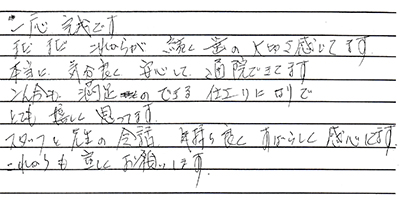 一応 完成です
これからが 続く 歯の 大切さ感じてます
本当に 気分良く 安心して 通院できてます
今回も 満足 のできる 仕上りになりで
とても 嬉しく 思ってます
スタッフと 先生の 会話 気持ち良く すばらしく 感心します
これからも 宜しく お願いします